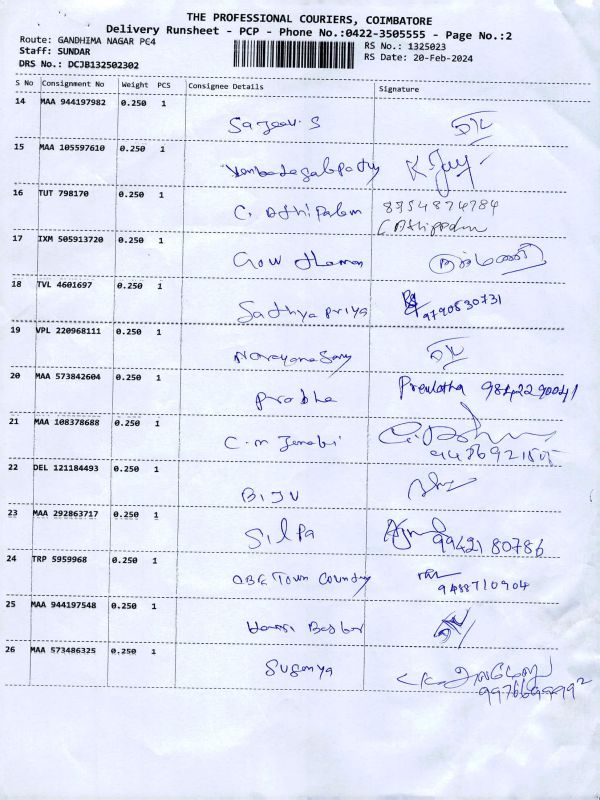 THE PROFESSIONAL COURIERS, COIMBATORE
Delivery Runsheet - PCP - Phone No.:0422-3505555 - Page No.:2
Route: GANDHIMA NAGAR PC4
RS No.: 1325023
Staff: SUNDAR
RS Date: 20-Feb-2024
DRS No.: DCJB132502302
S No Consignment No Weight PCS Consignee Details Signature
14 MAA 944197982 0.250 1
Sajeev. S
15 MAA 105597610 0.250 1
16 TUT 798170 0.250 1
C. Athipalam 8754874784
C Athippalam
17 IXM 505913720 0.250 1
Gow thaman
18 TVL 4601697 0.250 1
Sathya priya 9790530731
19 VPL 220968111 0.250 1
Narayanasamy
20 MAA 573842604 0.250 1
Prabha Premlatha 9842290041
21 MAA 108378688 0.250 1
C. m
22 DEL 121184493 0.250 1
BIJU
23 MAA 292863717 0.250 1
Silpa 9942180786
24 TRP 5959968 0.250 1
OBE Town Country 9488710904
25 MAA 944197548 0.250 1
26 MAA 573486325 0.250 1
Suganya